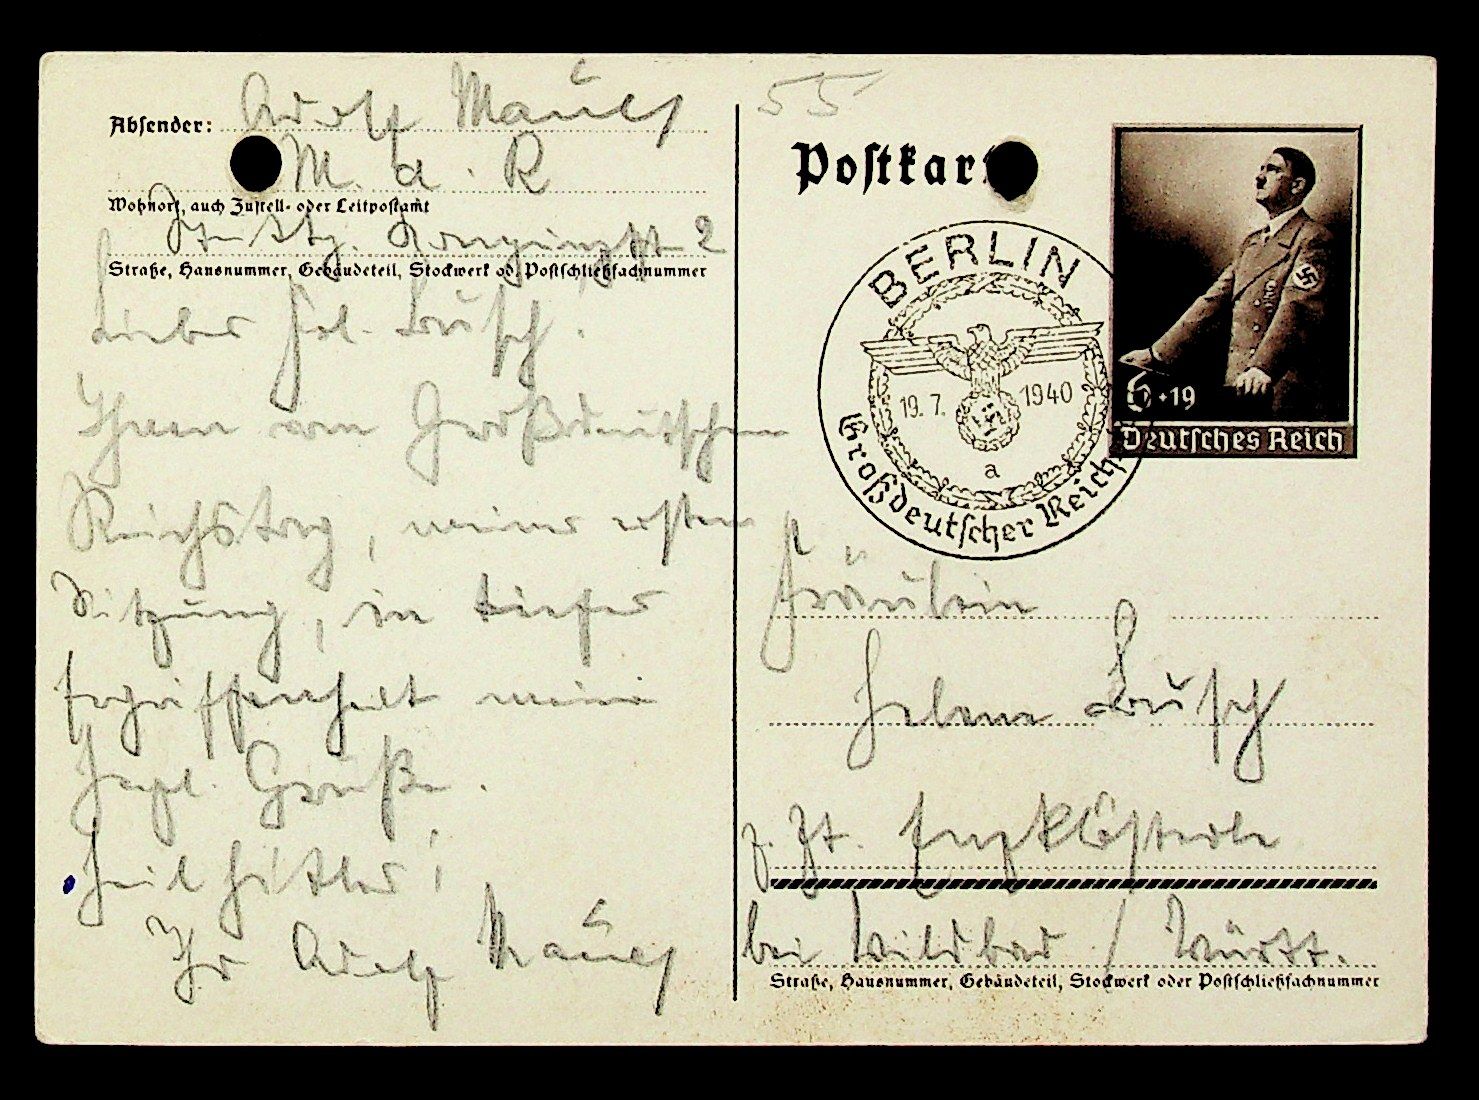 Absender: Adolf Mauch
M. d. R
Wohnort, auch Zustell- oder Leitpostamt
2
Straße, Hausnummer, Gebäudeteil, Stockwerk od. Postschließfachnummer
Liebes Frl. Busch!
Ihnen vom Großdeutschen
Reichstag, meiner ersten
Sitzung, in tiefer
Ergriffenheit meine
Herzl. Grüße.
Heil Hitler!
Ihr Adolf Mauch
55
Postkar
BERLIN
19.7. 1940
a
Großdeutscher Reichs
6+19
Deutsches Reich
Fräulein
Helene Busch
z. Zt. Enzklösterle
bei Wildbad / Württ.
Straße, Hausnummer, Gebäudeteil, Stockwerk oder Postschließfachnummer